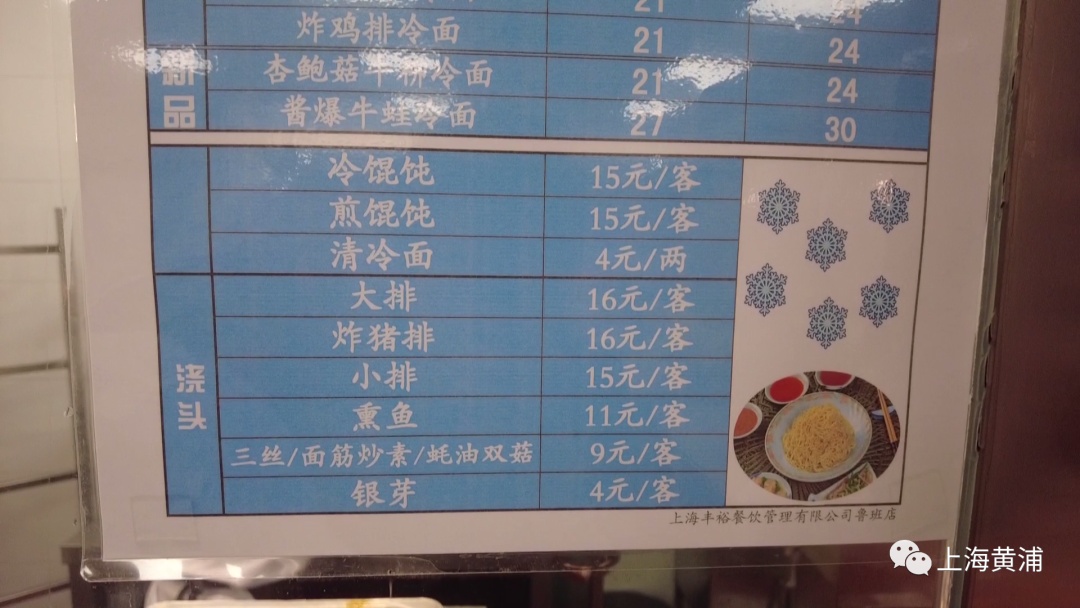 21 24
炸鸡排冷面 21 24
新品
杏鲍菇牛柳冷面 21 24
酱爆牛蛙冷面 27 30
冷馄饨 15元/客
煎馄饨 15元/客
清冷面 4元/两
浇头
大排 16元/客
炸猪排 16元/客
小排 15元/客
熏鱼 11元/客
三丝/面筋炒素/蚝油双菇 9元/客
银芽 4元/客
上海丰裕餐饮管理有限公司鲁班店
上海黄浦